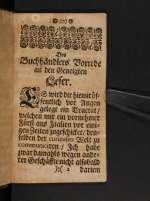 Des
Buchhändlers Vorrede
an den Geneigten
Leser.
ES wird dir hiemit öf-
fentlich vor Augen
gelegt ein Tractat/
welchen mir ein vornehmer
Fürst aus Italien vor eini-
gen Zeiten zugeschicket/ den-
selben der curieusen Welt zu
communiciren/ Ich habe
zwar damahls wegen ande-
rer Geschäffte nicht alsobald
darien